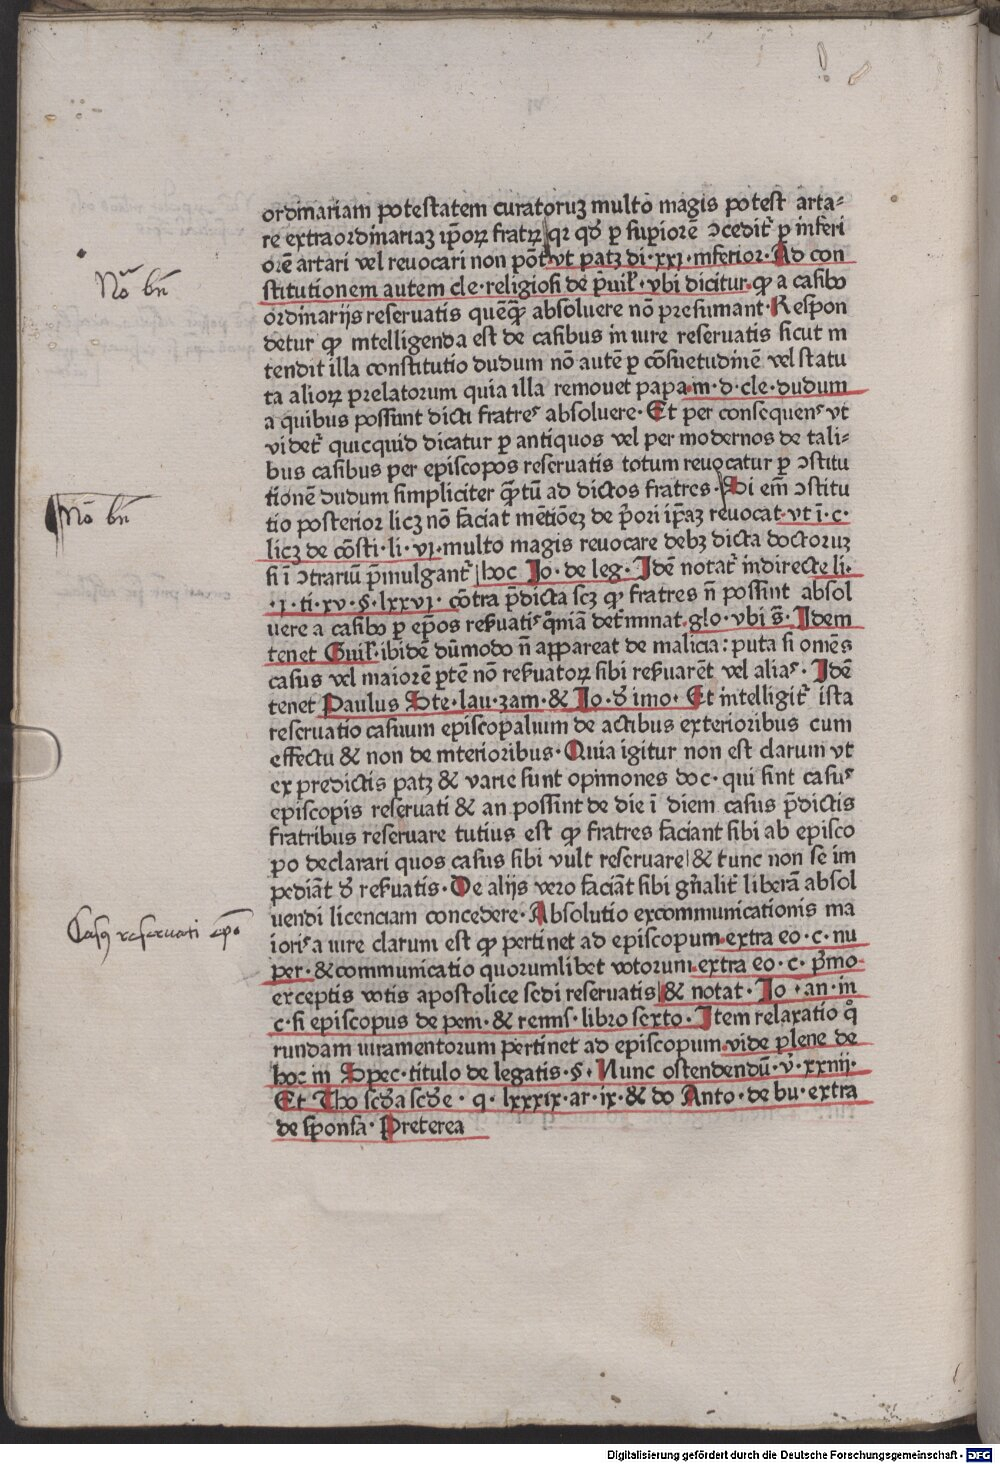 ordinariam potestatem curatoruꝫ multo magis potest arta-
re extraordinariaꝫ ip̄oꝝ fratꝝ qꝛ qd̓ ꝑ suꝑiorē ↄcedit᷑ ꝑ inferi
orē artari vel reuocari non pōt vt patꝫ di·xxi·inferior·Ad con
stitutionem autem cle·religiosi de p̄uil̓·vbi dicitur·ꝙ a casibꝰ
ordinarijs reseruatis quēqꝫ absoluere nō presumant·Respon
detur ꝙ intelligenda est de casibus in iure reseruatis sicut in
tendit illa constitutio dudum nō autē ꝑ cōsuetudinē vel statu
ta alioꝝ prelatorum quia illa remouet papa·in·d·cle·dudum
a quibus possunt dicti fratres absoluere·Et per consequens vt
videt᷑ quicquid dicatur ꝑ antiquos vel per modernos de tali-
Nō bn̄
bus casibus per episcopos reseruatis totum reuocatur ꝑ ↄstitu
tionē dudum simpliciter qᷓtū ad dictos fratres·Si em̄ ↄstitu
Nō bn̄
tio posterior licꝫ nō faciat mētiōeꝫ de p̓ori ip̄aꝫ reuocat·vt ī·c·
licꝫ de cōsti·li·vi·multo magis reuocare debꝫ dicta doctoruꝫ
si ī ↄtrariū ꝓmulgant᷑ hoc Jo·de leg·Idē notat᷑ indirecte li·
·i·ti·xv·§·lxxvi·cōtra p̄dicta scꝫ ꝙ fratres n̄ possint absol
uere a casibꝰ ꝑ ep̄os reẜuatis qm̄iā det̓minat·glo·vbi s̄·Idem
tenet Guil̓·ibidē dūmodo n̄ appareat de malicia: puta si omēs
casus vel maiorē ꝑtē nō reẜuatoꝝ sibi reẜuarēt vel alias·Idē
tenet Paulus Ste·lau·zam·& Jo·d̓ imo·Et intelligit᷑ ista
reseruatio casuum episcopalium de actibus exterioribus cum
effectu & non de interioribus·Quia igitur non est clarum vt
ex predictis patꝫ & varie sunt opiniones doc·qui sint casus
episcopis reseruati & an possint de die ī diem casus p̄dictis
fratribus reseruare tutius est ꝙ fratres faciant sibi ab episco
po declarari quos casus sibi vult reseruare & tunc non se im
pediāt d̓ reẜuatis·De alijs vero faciāt sibi gn̄alit̓ liberā absol
uendi licenciam concedere·Absolutio excommunicationis ma
Casꝰ reseruati ep̄o
ioris a iure clarum est ꝙ pertinet ad episcopum·extra eo·c·nu
per·& communicatio quorumlibet votorum·extra eo·c·p̓mo·
exceptis votis apostolice sedi reseruatis & notat·Jo·an·in
c·si episcopus de peni·& remis·libro sexto·Item relaxatio q̊
rundam iuramentorum pertinet ad episcopum·vide plene de
hoc in Spec·titulo de legatis·§·Nunc ostendendū·v̓·xxiiij·
Et Tho scd̓a scd̓e·q·lxxxix·ar·ix·& do Anto·de bu·extra
de sponsa·Preterea
Digitalisierung gefördert durch die Deutsche Forschungsgemeinschaft - DFG